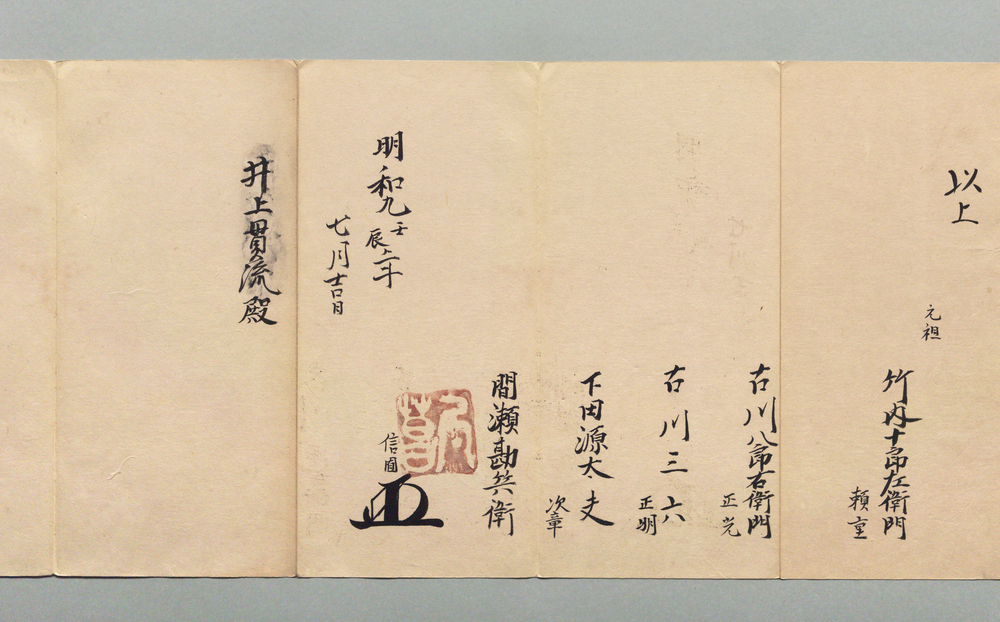 以上
元祖
竹内十郎左衛門
頼重
古川八郎右衛門
正光
古川三六
正明
下田源太夫
次章
間瀬勘兵衛
信圓
明和九壬辰年
七月吉日
井上貫流殿